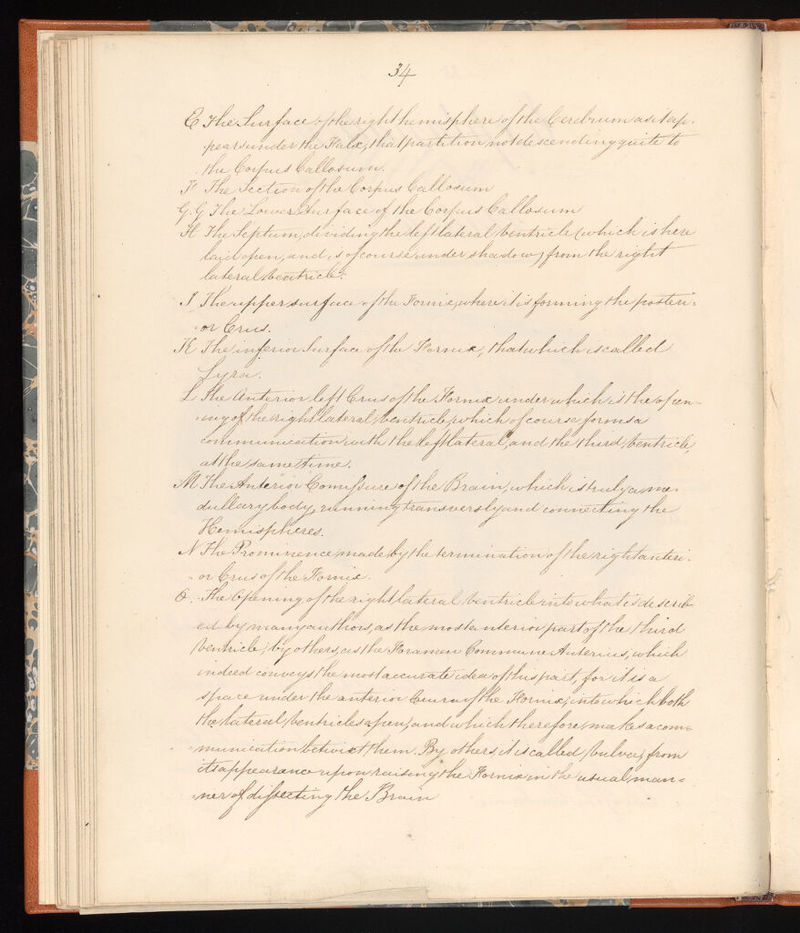 34
E The Surface of the right hemisphere of the Cerebrum as it ap-
pears under the Falx; that partition not descending quite to
the Corpus Callosum.
F The Section of the Corpus Callosum
G.G The Lower Surface of the Corpus Callosum
H The Septum, dividing the left lateral Ventricle (which is here
laid open, and is of course under shadow) from the right
lateral Ventricle.
I The upper surface of the Fornix, where it is forming the posteri-
-or Crus.
K The inferior Surface of the Fornix, that which is called
Lyra.
L The Anterior left Crus of the Fornix under which is the open-
-ing of the right lateral Ventricle, which of course forms a
communication with the left lateral, and the third Ventricle,
at the same time.
M The Anterior Comissure of the Brain, which is truly a me-
dullary body, running transversly and connecting the
Hemispheres.
N The Prominence made by the termination of the right anteri-
-or Crus of the Fornix.
O. The Opening of the right lateral Ventricle into what is describ-
ed by many authors, as the most anterior part of the third
Ventricle; by others, as the Foramen Commune Anterius, which
indeed conveys the most accurate idea of this part, for it is a
space under the anterior Crura of the Fornix, into which both
the lateral Ventricles open, and which therefore makes a com-
-munication betwixt them. By others it is called Vulva, from
its appearance upon raising the Fornix in the usual man-
-ner of dissecting the Brain